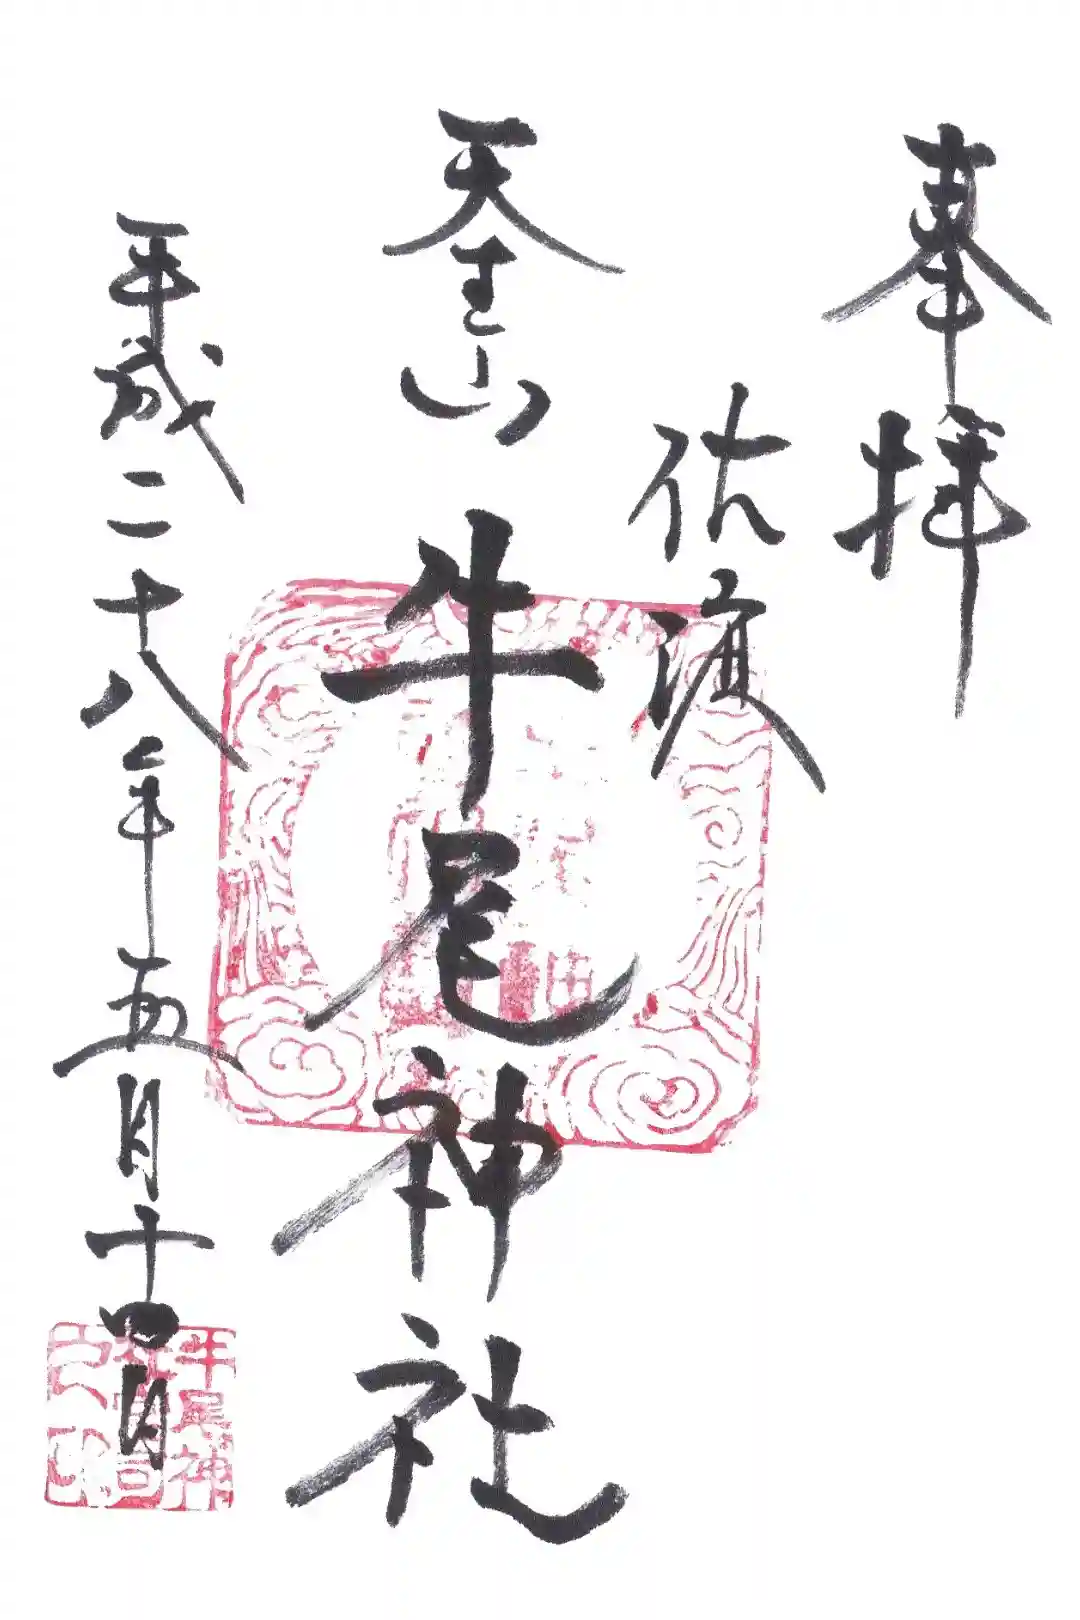 奉拝
佐渡
天王山 牛尾神社
平成二十八年五月十四日
牛尾神
社宮司
之印